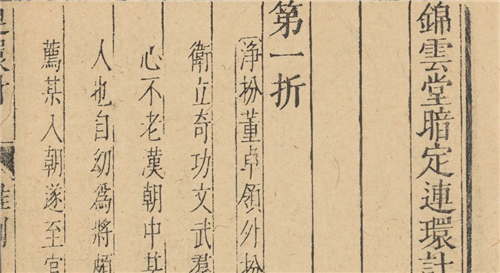 錦雲堂暗定連環計
第一折
淨扮董卓領外扮
衛立奇功文武羣
心不老漢朝中某
人也自幼爲將頗
薦某入朝遂至官